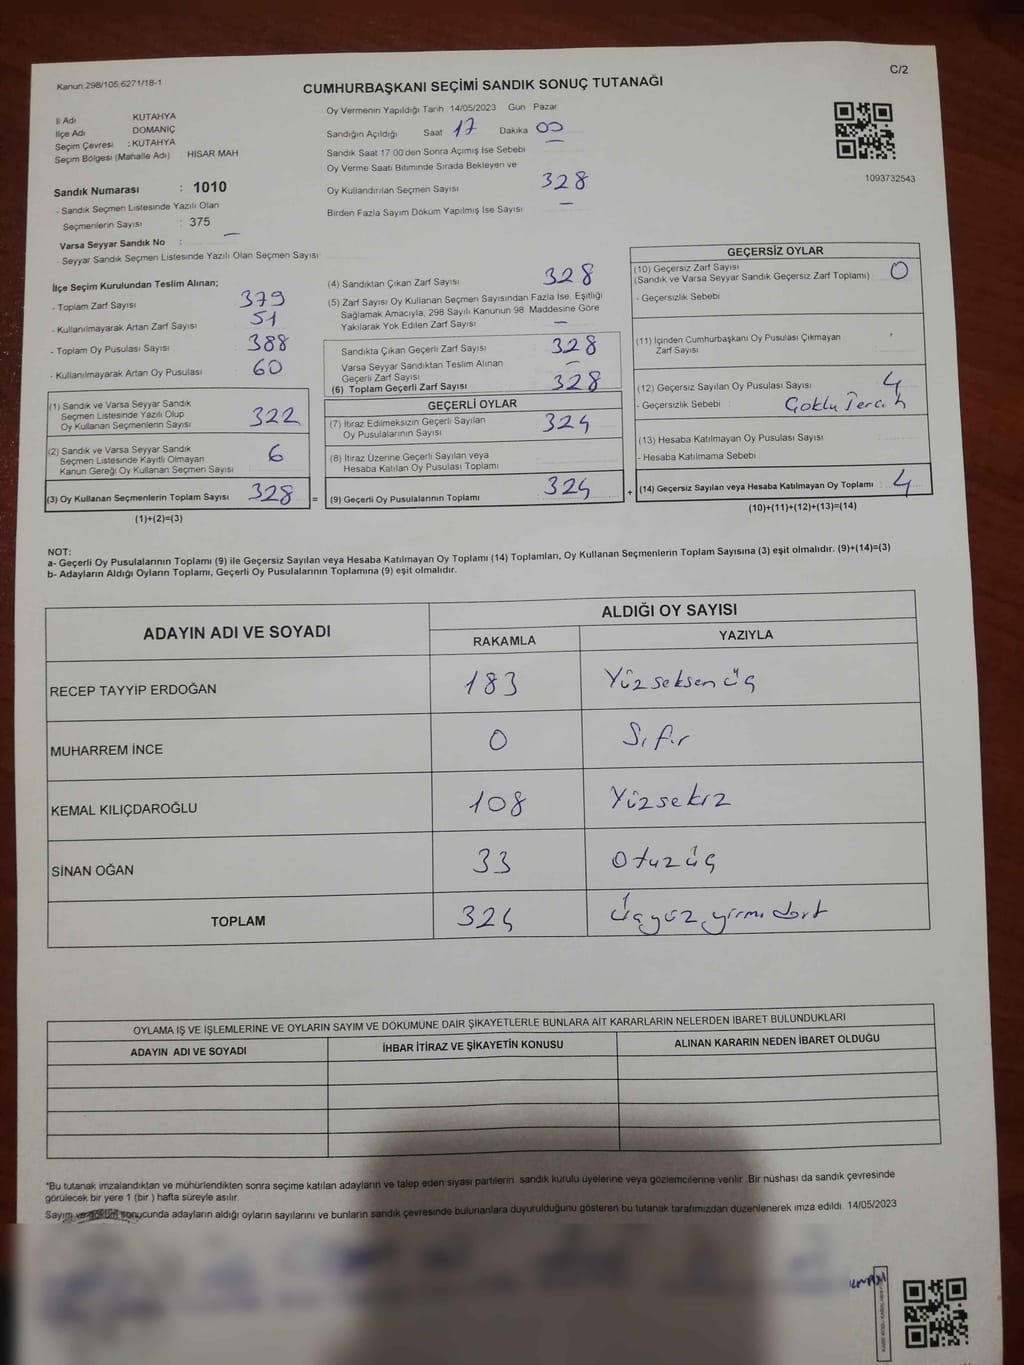 Kanun:298/105,6271/18-1
C/2
CUMHURBAŞKANI SEÇİMİ SANDIK SONUÇ TUTANAĞI
İl Adı KUTAHYA
İlçe Adı DOMANİÇ
Seçim Çevresi : KUTAHYA
Seçim Bölgesi (Mahalle Adı) HİSAR MAH
Sandık Numarası : 1010
- Sandık Seçmen Listesinde Yazılı Olan
Seçmenlerin Sayısı : 375
Varsa Seyyar Sandık No : —
- Seyyar Sandık Seçmen Listesinde Yazılı Olan Seçmen Sayısı
Oy Vermenin Yapıldığı Tarih 14/05/2023 Gün Pazar
Sandığın Açıldığı Saat 17 Dakika 00
Sandık Saat 17:00'den Sonra Açımış İse Sebebi —
Oy Verme Saati Bitiminde Sırada Bekleyen ve
Oy Kullandırılan Seçmen Sayısı 328
Birden Fazla Sayım Döküm Yapılmış İse Sayısı —
1093732543
İlçe Seçim Kurulundan Teslim Alınan;
- Toplam Zarf Sayısı 379
- Kullanılmayarak Artan Zarf Sayısı 51
- Toplam Oy Pusulası Sayısı 388
- Kullanılmayarak Artan Oy Pusulası 60
(1) Sandık ve Varsa Seyyar Sandık
Seçmen Listesinde Yazılı Olup
Oy Kullanan Seçmenlerin Sayısı 322
(2) Sandık ve Varsa Seyyar Sandık
Seçmen Listesinde Kayıtlı Olmayan
Kanun Gereği Oy Kullanan Seçmen Sayısı 6
(3) Oy Kullanan Seçmenlerin Toplam Sayısı 328 =
(1)+(2)=(3)
(4) Sandıktan Çıkan Zarf Sayısı 328
(5) Zarf Sayısı Oy Kullanan Seçmen Sayısından Fazla İse, Eşitliği
Sağlamak Amacıyla, 298 Sayılı Kanunun 98. Maddesine Göre
Yakılarak Yok Edilen Zarf Sayısı —
Sandıkta Çıkan Geçerli Zarf Sayısı 328
Varsa Seyyar Sandıktan Teslim Alınan
Geçerli Zarf Sayısı —
(6) Toplam Geçerli Zarf Sayısı 328
GEÇERLİ OYLAR
(7) İtiraz Edilmeksizin Geçerli Sayılan
Oy Pusulalarının Sayısı 324
(8) İtiraz Üzerine Geçerli Sayılan veya
Hesaba Katılan Oy Pusulası Toplamı
(9) Geçerli Oy Pusulalarının Toplamı 324 +
GEÇERSİZ OYLAR
(10) Geçersiz Zarf Sayısı
(Sandık ve Varsa Seyyar Sandık Geçersiz Zarf Toplamı) 0
- Geçersizlik Sebebi
(11) İçinden Cumhurbaşkanı Oy Pusulası Çıkmayan
Zarf Sayısı
(12) Geçersiz Sayılan Oy Pusulası Sayısı 4
- Geçersizlik Sebebi : Çoklu Tercih
(13) Hesaba Katılmayan Oy Pusulası Sayısı
- Hesaba Katılmama Sebebi
(14) Geçersiz Sayılan veya Hesaba Katılmayan Oy Toplamı 4
(10)+(11)+(12)+(13)=(14)
NOT:
a- Geçerli Oy Pusulalarının Toplamı (9) ile Geçersiz Sayılan veya Hesaba Katılmayan Oy Toplamı (14) Toplamları, Oy Kullanan Seçmenlerin Toplam Sayısına (3) eşit olmalıdır. (9)+(14)=(3)
b- Adayların Aldığı Oyların Toplamı, Geçerli Oy Pusulalarının Toplamına (9) eşit olmalıdır.
ADAYIN ADI VE SOYADI
ALDIĞI OY SAYISI
RAKAMLA YAZIYLA
RECEP TAYYİP ERDOĞAN 183 Yüzseksenüç
MUHARREM İNCE 0 Sıfır
KEMAL KILIÇDAROĞLU 108 Yüzsekiz
SİNAN OĞAN 33 Otuzüç
TOPLAM 324 Üçyüzyirmidört
OYLAMA İŞ VE İŞLEMLERİNE VE OYLARIN SAYIM VE DÖKÜMÜNE DAİR ŞİKAYETLERLE BUNLARA AİT KARARLARIN NELERDEN İBARET BULUNDUKLARI
ADAYIN ADI VE SOYADI İHBAR İTİRAZ VE ŞİKAYETİN KONUSU ALINAN KARARIN NEDEN İBARET OLDUĞU
*Bu tutanak imzalandıktan ve mühürlendikten sonra seçime katılan adayların ve talep eden siyasi partilerin sandık kurulu üyelerine veya gözlemcilerine verilir. Bir nüshası da sandık çevresinde
görülecek bir yere 1 (bir ) hafta süreyle asılır.
Sayım ve döküm sonucunda adayların aldığı oyların sayılarını ve bunların sandık çevresinde bulunanlara duyurulduğunu gösteren bu tutanak tarafımızdan düzenlenerek imza edildi. 14/05/2023